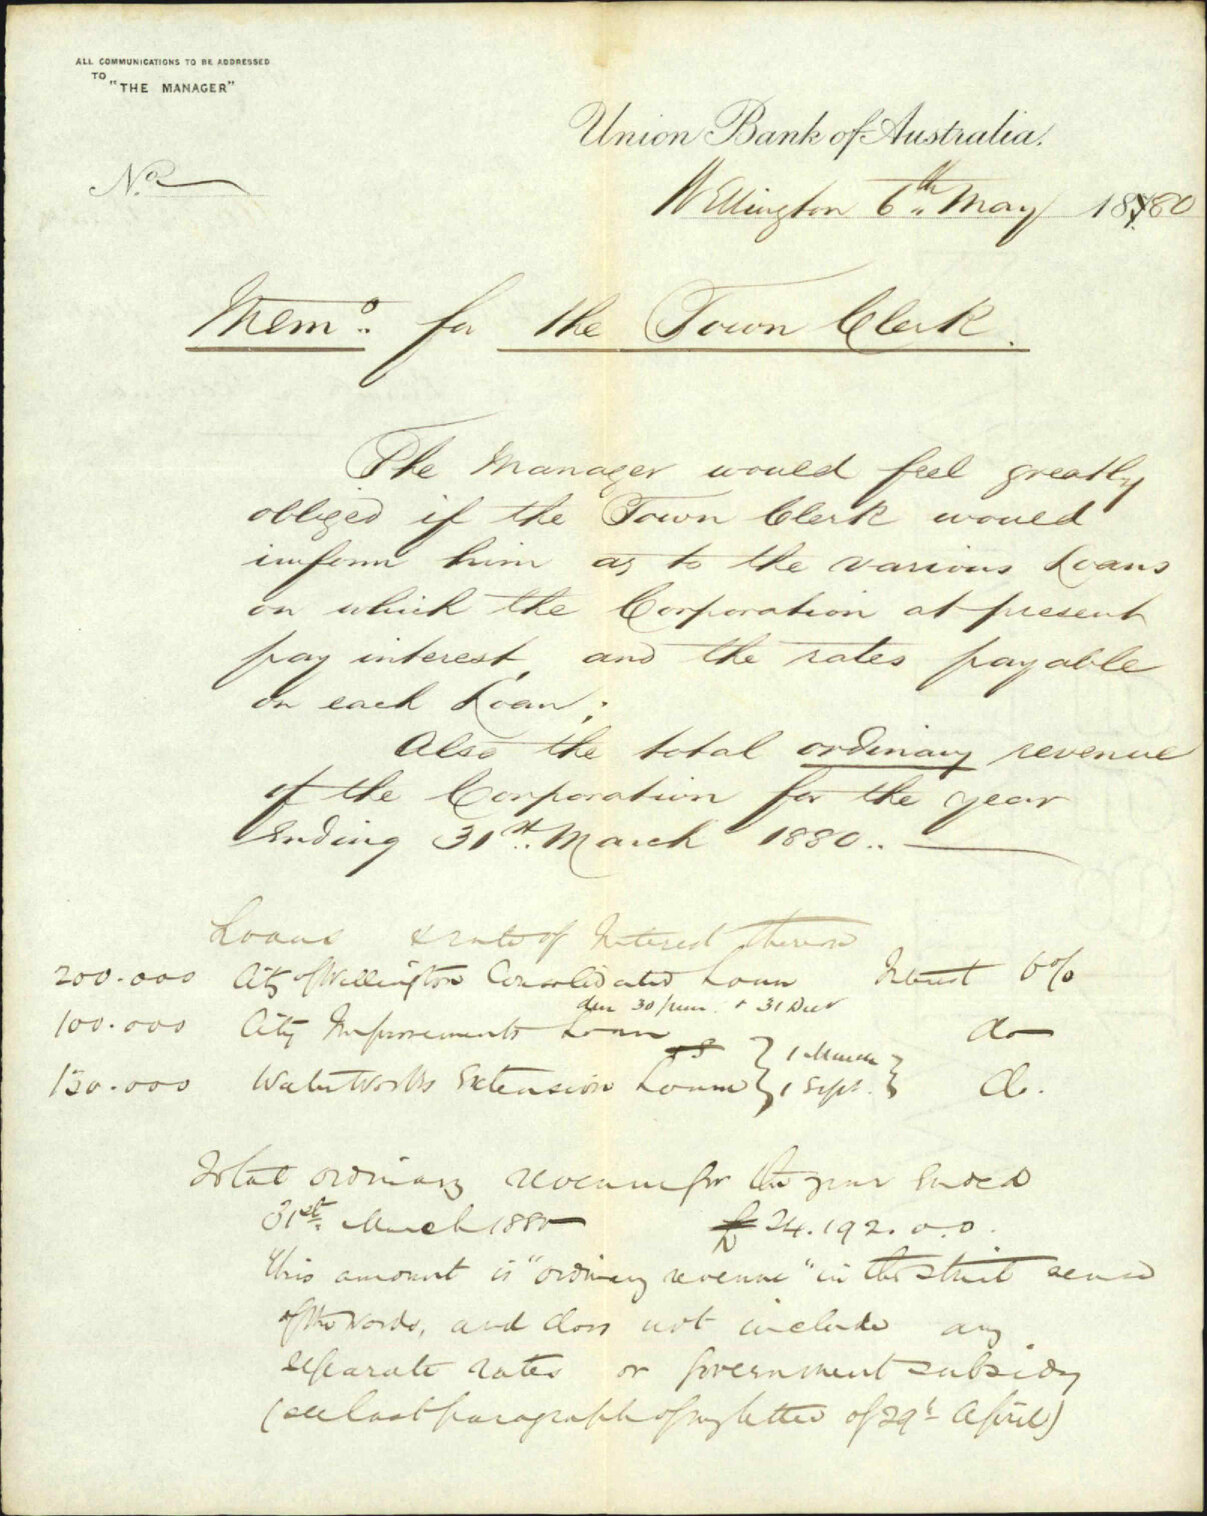 ALL COMMUNICATIONS TO BE ADDRESSED
TO "THE MANAGER"
Union Bank of Australia.
No.
Wellington 6th May 1880
Memo. for the Town Clerk.
The Manager would feel greatly
obliged if the Town Clerk would
inform him as to the various Loans
on which the Corporation at present
pay interest, and the rates payable
on each Loan;
Also the total ordinary revenue
of the Corporation for the year
Ending 31st. March 1880..
Loans & rate of Interest thereon
200.000 City of Wellington Consolidated Loan Interest 6%
due 30 June & 31 Decr
100.000 City Improvements Loan do
130.000 Water Works Extension Loan } 1 March 1 Sept. } do.
Total ordinary revenue for the year ended
31st. March 1880 £24.192.0.0.
This amount is "ordinary revenue" in the strict sense
of the words, and does not include any
separate rates or Government subsidy
(see last paragraph of my letter of 29th April)